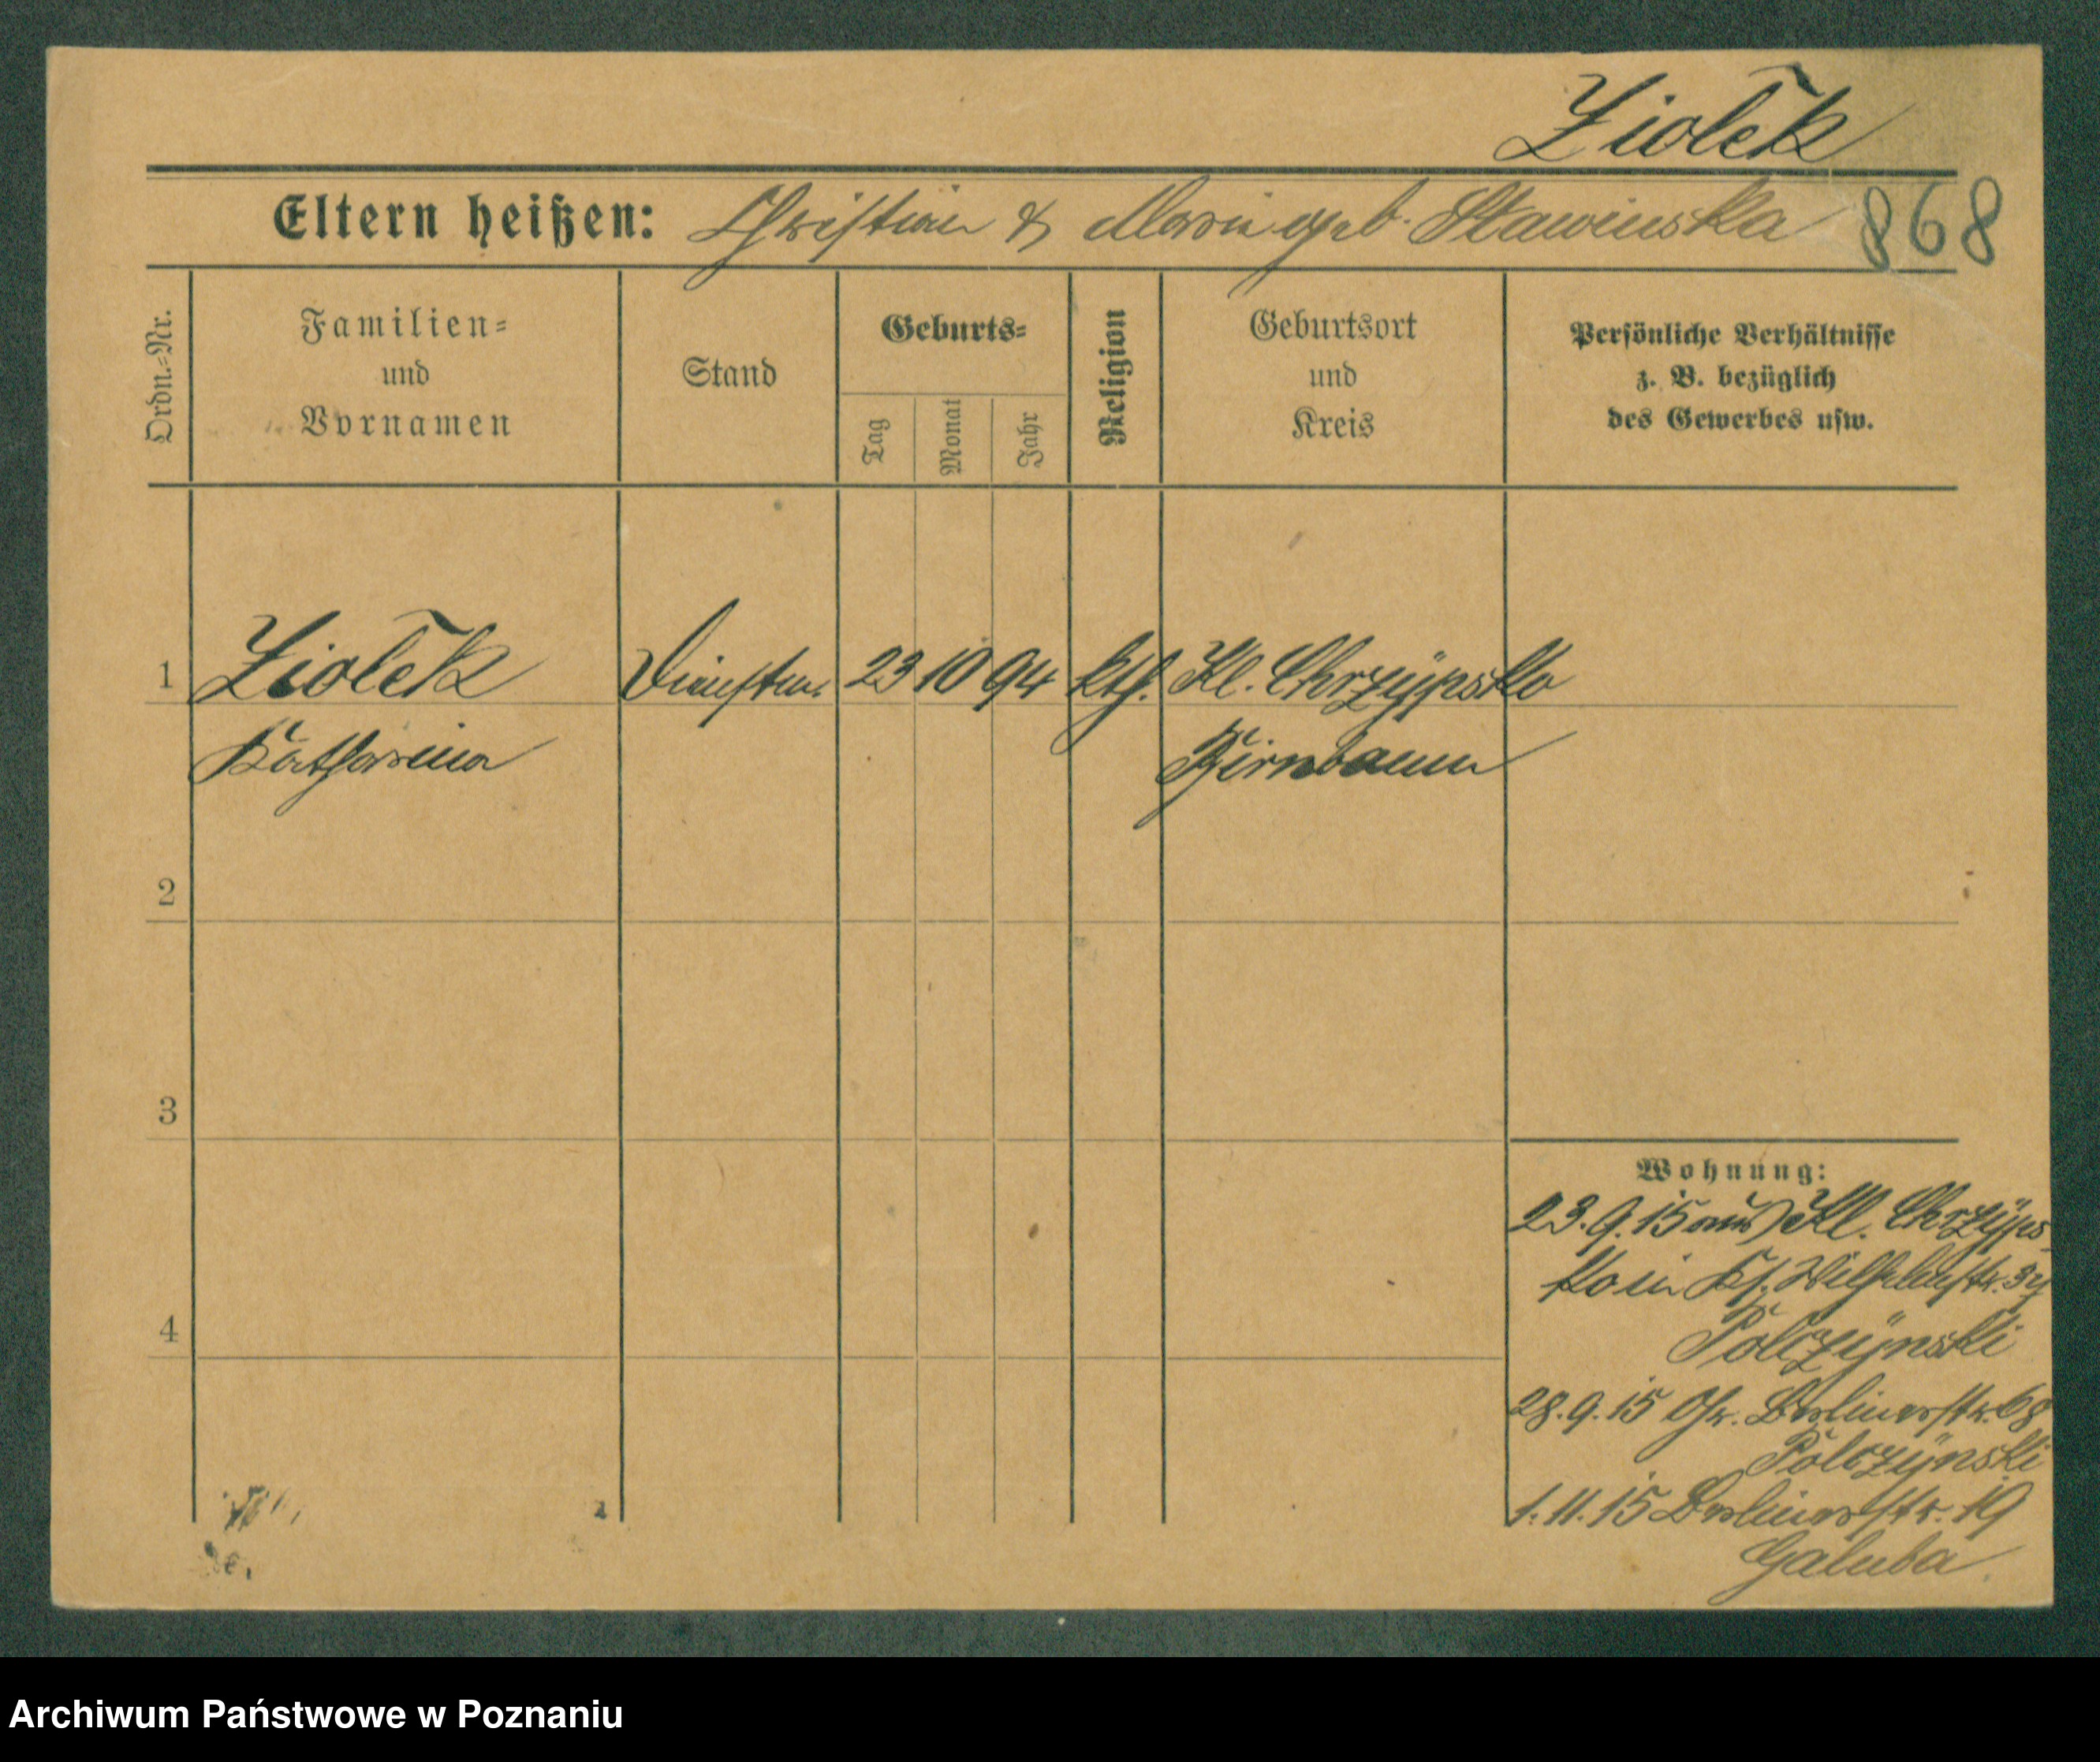 Ziolek
Eltern heißen: Christian & Marie geb. Stawinska 868
Ordn.-Nr.
Familien-
und
Vornamen
Stand
Geburts-
Tag
Monat
Jahr
Religion
Geburtsort
und
Kreis
Persönliche Verhältnisse
z. B. bezüglich
des Gewerbes usw.
1 Ziolek 23 10 94 kth. Kl. Chrzypsko
Katharina Birnbaum
2
3
4
Wohnung:
23.9.15 aus Kl. Chrzyps-
ko in Wilhelmstr.
Polczynski
28.9.15 Gr. Berlinerstr. 68
Polczynski
1.11.15 Berlinerstr. 19
Galuba
Archiwum Państwowe w Poznaniu